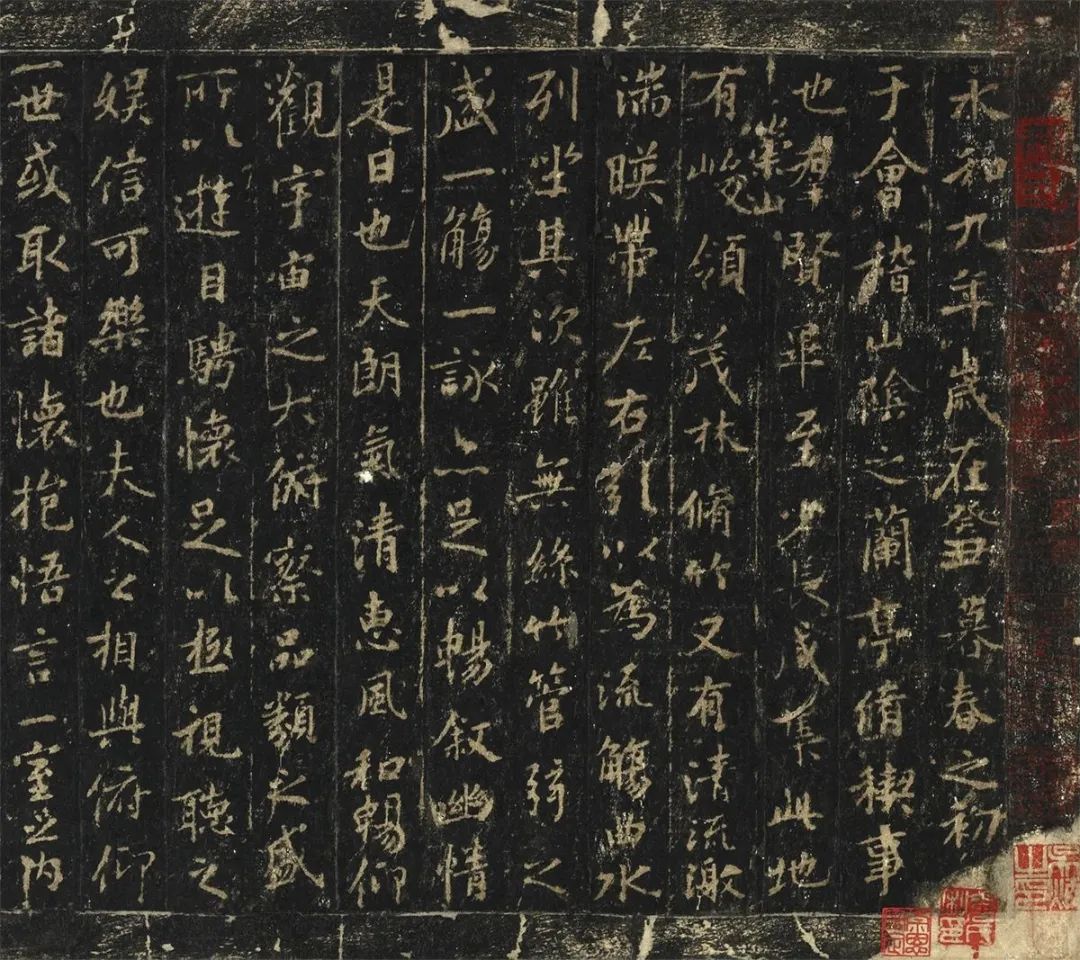 永和九年歲在癸丑暮春之初
于會稽山陰之蘭亭脩稧事
也羣賢畢至少長咸集此地
有崇山峻領茂林脩竹又有清流激
湍暎帶左右引以為流觴曲水
列坐其次雖無絲竹管弦之
盛一觴一詠亦足以暢叙幽情
是日也天朗氣清惠風和暢仰
觀宇宙之大俯察品類之盛
所以遊目騁懷足以極視聽之
娛信可樂也夫人之相與俯仰
一世或取諸懷抱悟言一室之內